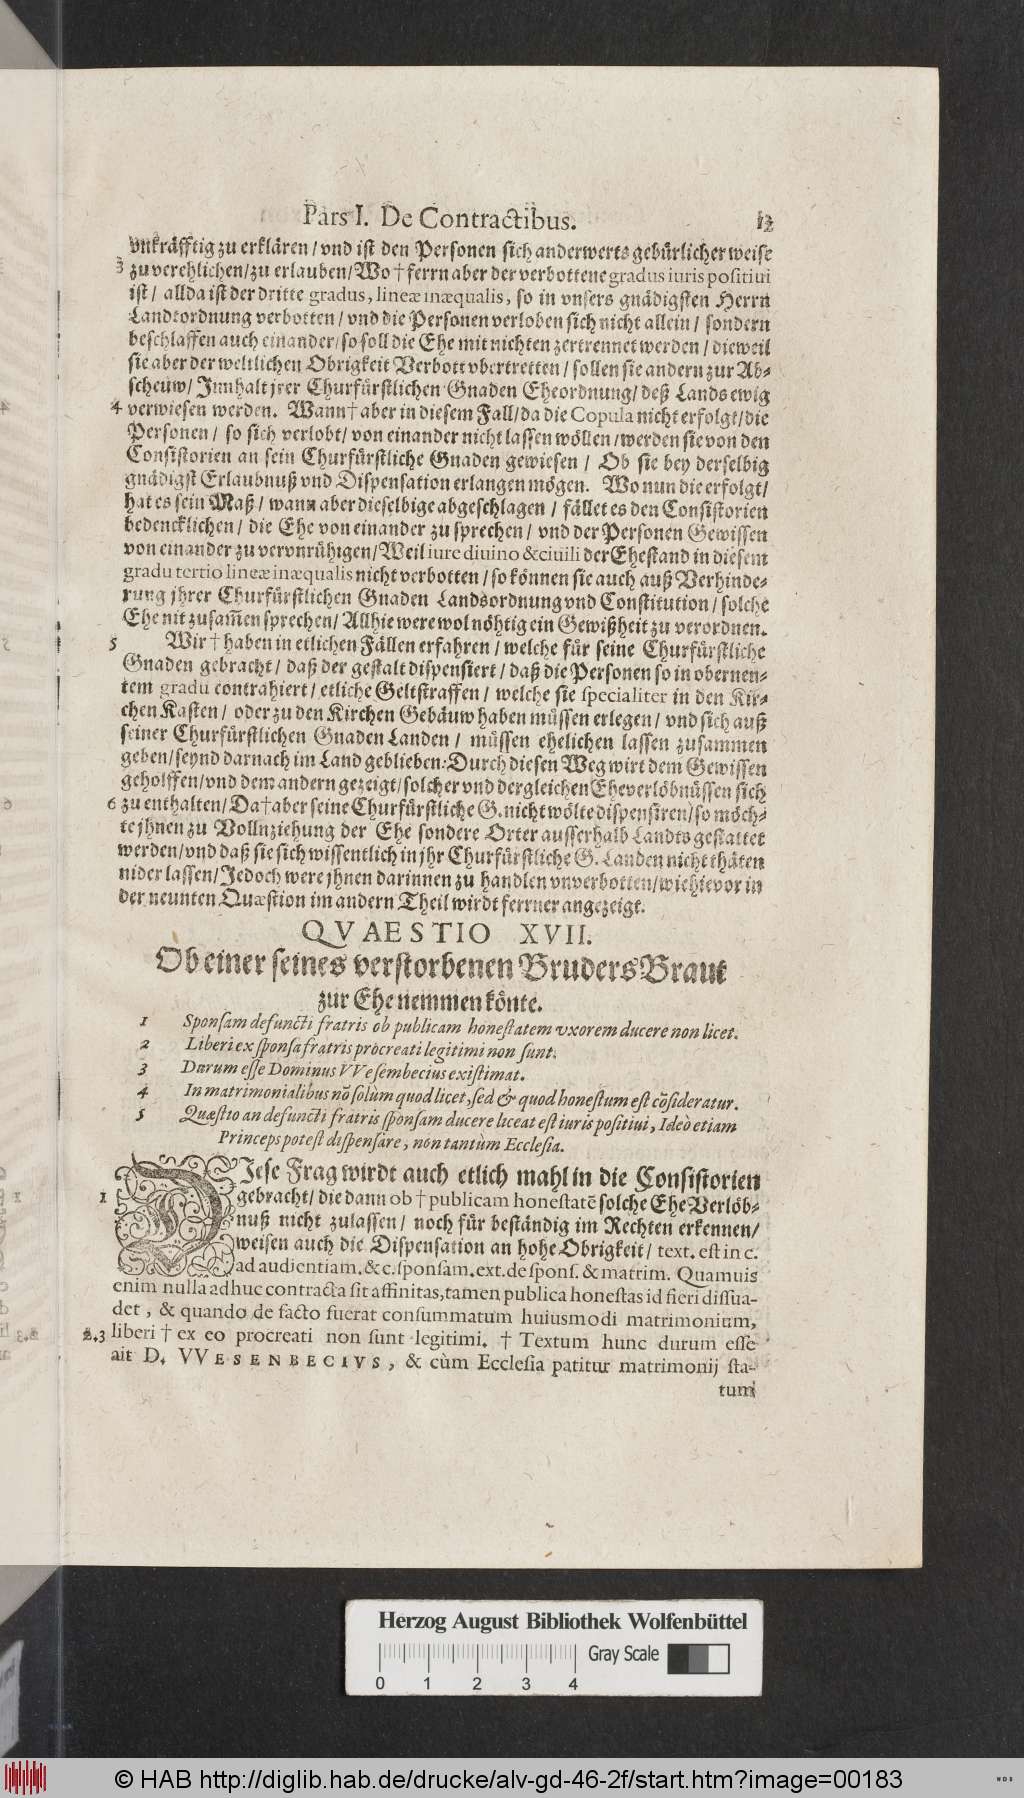 Pars I. De Contractibus. 12
vnkräfftig zu erklären / vnd ist den Personen sich anderwerts gebürlicher weise
3 zu verehlichen / zu erlauben / Wo † ferrn aber der verbottene gradus iuris positiui
ist / allda ist der dritte gradus, lineæ inæqualis, so in vnsers gnädigsten Herrn
Landtordnung verbotten / vnd die Personen verloben sich nicht allein / sondern
beschlaffen auch einander / so soll die Ehe mit nichten zertrennet werden / dieweil
sie aber der weltlichen Obrigkeit Verbott vbertretten / sollen sie andern zur Ab-
scheuw / Innhalt jrer Churfürstlichen Gnaden Eheordnung / deß Lands ewig
4 verwiesen werden. Wann † aber in diesem Fall / da die Copula nicht erfolgt / die
Personen / so sich verlobt / von einander nicht lassen wöllen / werden sie von den
Consistorien an sein Churfürstliche Gnaden gewiesen / Ob sie bey derselbig
gnädigst Erlaubnuß vnd Dispensation erlangen mögen. Wo nun die erfolgt /
hat es sein Maß / wann aber dieselbige abgeschlagen / fället es den Consistorien
bedencklichen / die Ehe von einander zu sprechen / vnd der Personen Gewissen
von einander zu vervnrühigen / Weil iure diuino & ciuili der Ehestand in diesem
gradu tertio lineæ inæqualis nicht verbotten / so können sie auch auß Verhinde-
rung jhrer Churfürstlichen Gnaden Landsordnung vnd Constitution / solche
Ehe nit zusam̃en sprechen / Allhie were wol nöhtig ein Gewißheit zu verordnen.
5 Wir † haben in etlichen Fällen erfahren / welche für seine Churfürstliche
Gnaden gebracht / daß der gestalt dispensiert / daß die Personen so in obernen-
tem gradu contrahiert / etliche Geltstraffen / welche sie specialiter in den Kir-
chen Kasten / oder zu den Kirchen Gebäuw haben müssen erlegen / vnd sich auß
seiner Churfürstlichen Gnaden Landen / müssen ehelichen lassen zusammen
geben / seynd darnach im Land geblieben: Durch diesen Weg wirt dem Gewissen
geholffen / vnd dem andern gezeigt / solcher vnd dergleichen Eheverlöbnüssen sich
6 zu enthalten / Da † aber seine Churfürstliche G. nicht wölte dispensiren / so möch-
te jhnen zu Vollnziehung der Ehe sondere Orter ausserhalb Landts gestattet
werden / vnd daß sie sich wissentlich in jhr Churfürstliche G. Landen nicht thäten
nider lassen / Jedoch were jhnen darinnen zu handlen vnverbotten / wie hievor in
der neunten Quæstion im andern Theil wirdt ferrner angezeigt.
QVAESTIO XVII.
Ob einer seines verstorbenen Bruders Braut
zur Ehe nemmen könte.
1 Sponsam defuncti fratris ob publicam honestatem vxorem ducere non licet.
2 Liberi ex sponsa fratris procreati legitimi non sunt.
3 Durum esse Dominus VVesembecius existimat.
4 In matrimonialibus nõ solùm quod licet, sed & quod honestum est cõsideratur.
5 Quæstio an defuncti fratris sponsam ducere liceat est iuris positiui, Ideò etiam
Princeps potest dispensare, non tantùm Ecclesia.
DIese Frag wirdt auch etlich mahl in die Consistorien
1 gebracht / die dann ob † publicam honestatẽ solche Ehe Verlöb-
nuß nicht zulassen / noch für beständig im Rechten erkennen /
weisen auch die Dispensation an hohe Obrigkeit / text. est in c.
ad audientiam. & c. sponsam. ext. de spons. & matrim. Quamuis
enim nulla adhuc contracta sit affinitas, tamen publica honestas id fieri dissua-
det, & quando de facto fuerat consummatum huiusmodi matrimonium,
2.3 liberi † ex eo procreati non sunt legitimi. † Textum hunc durum esse
ait D. VVESENBECIVS, & cùm Ecclesia patitur matrimonij sta-
tum
Herzog August Bibliothek Wolfenbüttel
Gray Scale
0 1 2 3 4
© HAB http://diglib.hab.de/drucke/alv-gd-46-2f/start.htm?image=00183